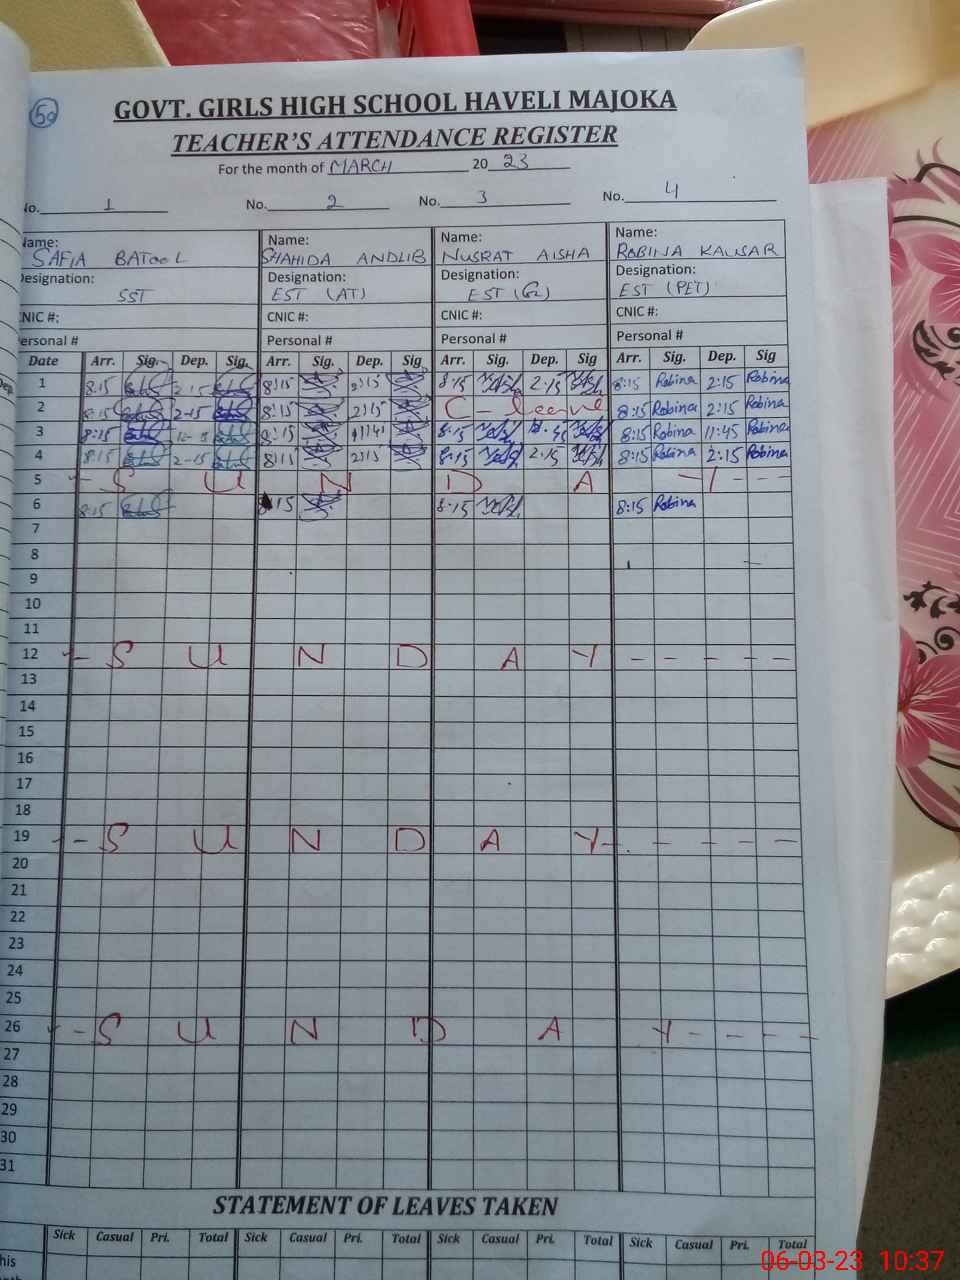 50
GOVT. GIRLS HIGH SCHOOL HAVELI MAJOKA
TEACHER'S ATTENDANCE REGISTER
For the month of MARCH 20 23
No. 1 No. 2 No. 3 No. 4
Name: Name: Name: Name:
SAFIA BATOOL SHAHIDA ANDLIB NUSRAT AISHA ROBINA KAUSAR
Designation: Designation: Designation: Designation:
SST EST (AT) EST (G2) EST (PET)
CNIC #: CNIC #: CNIC #: CNIC #:
Personal # Personal # Personal # Personal #
Date Arr. Sig. Dep. Sig. Arr. Sig. Dep. Sig Arr. Sig. Dep. Sig Arr. Sig. Dep. Sig
1 8:15 2-15 8:15 2:15 8:15 2:15 8:15 Robina 2:15 Robina
2 8:15 2-15 8:15 2:15 C- leave 8:15 Robina 2:15 Robina
3 8:15 8:15 11:45 8:15 8:15 Robina 11:45 Robina
4 8:15 2-15 8:15 2:15 8:15 2:15 8:15 Robina 2:15 Robina
5 - S U N D A Y - - -
6 8:15 8:15 8:15 8:15 Robina
7
8
9
10
11
12 - S U N D A Y - - - - -
13
14
15
16
17
18
19 - - S U N D A Y - - - - -
20
21
22
23
24
25
26 - - S U N D A Y - - - -
27
28
29
30
31
STATEMENT OF LEAVES TAKEN
Sick Casual Pri. Total Sick Casual Pri. Total Sick Casual Pri. Total Sick Casual Pri. Total
06-03-23 10:37